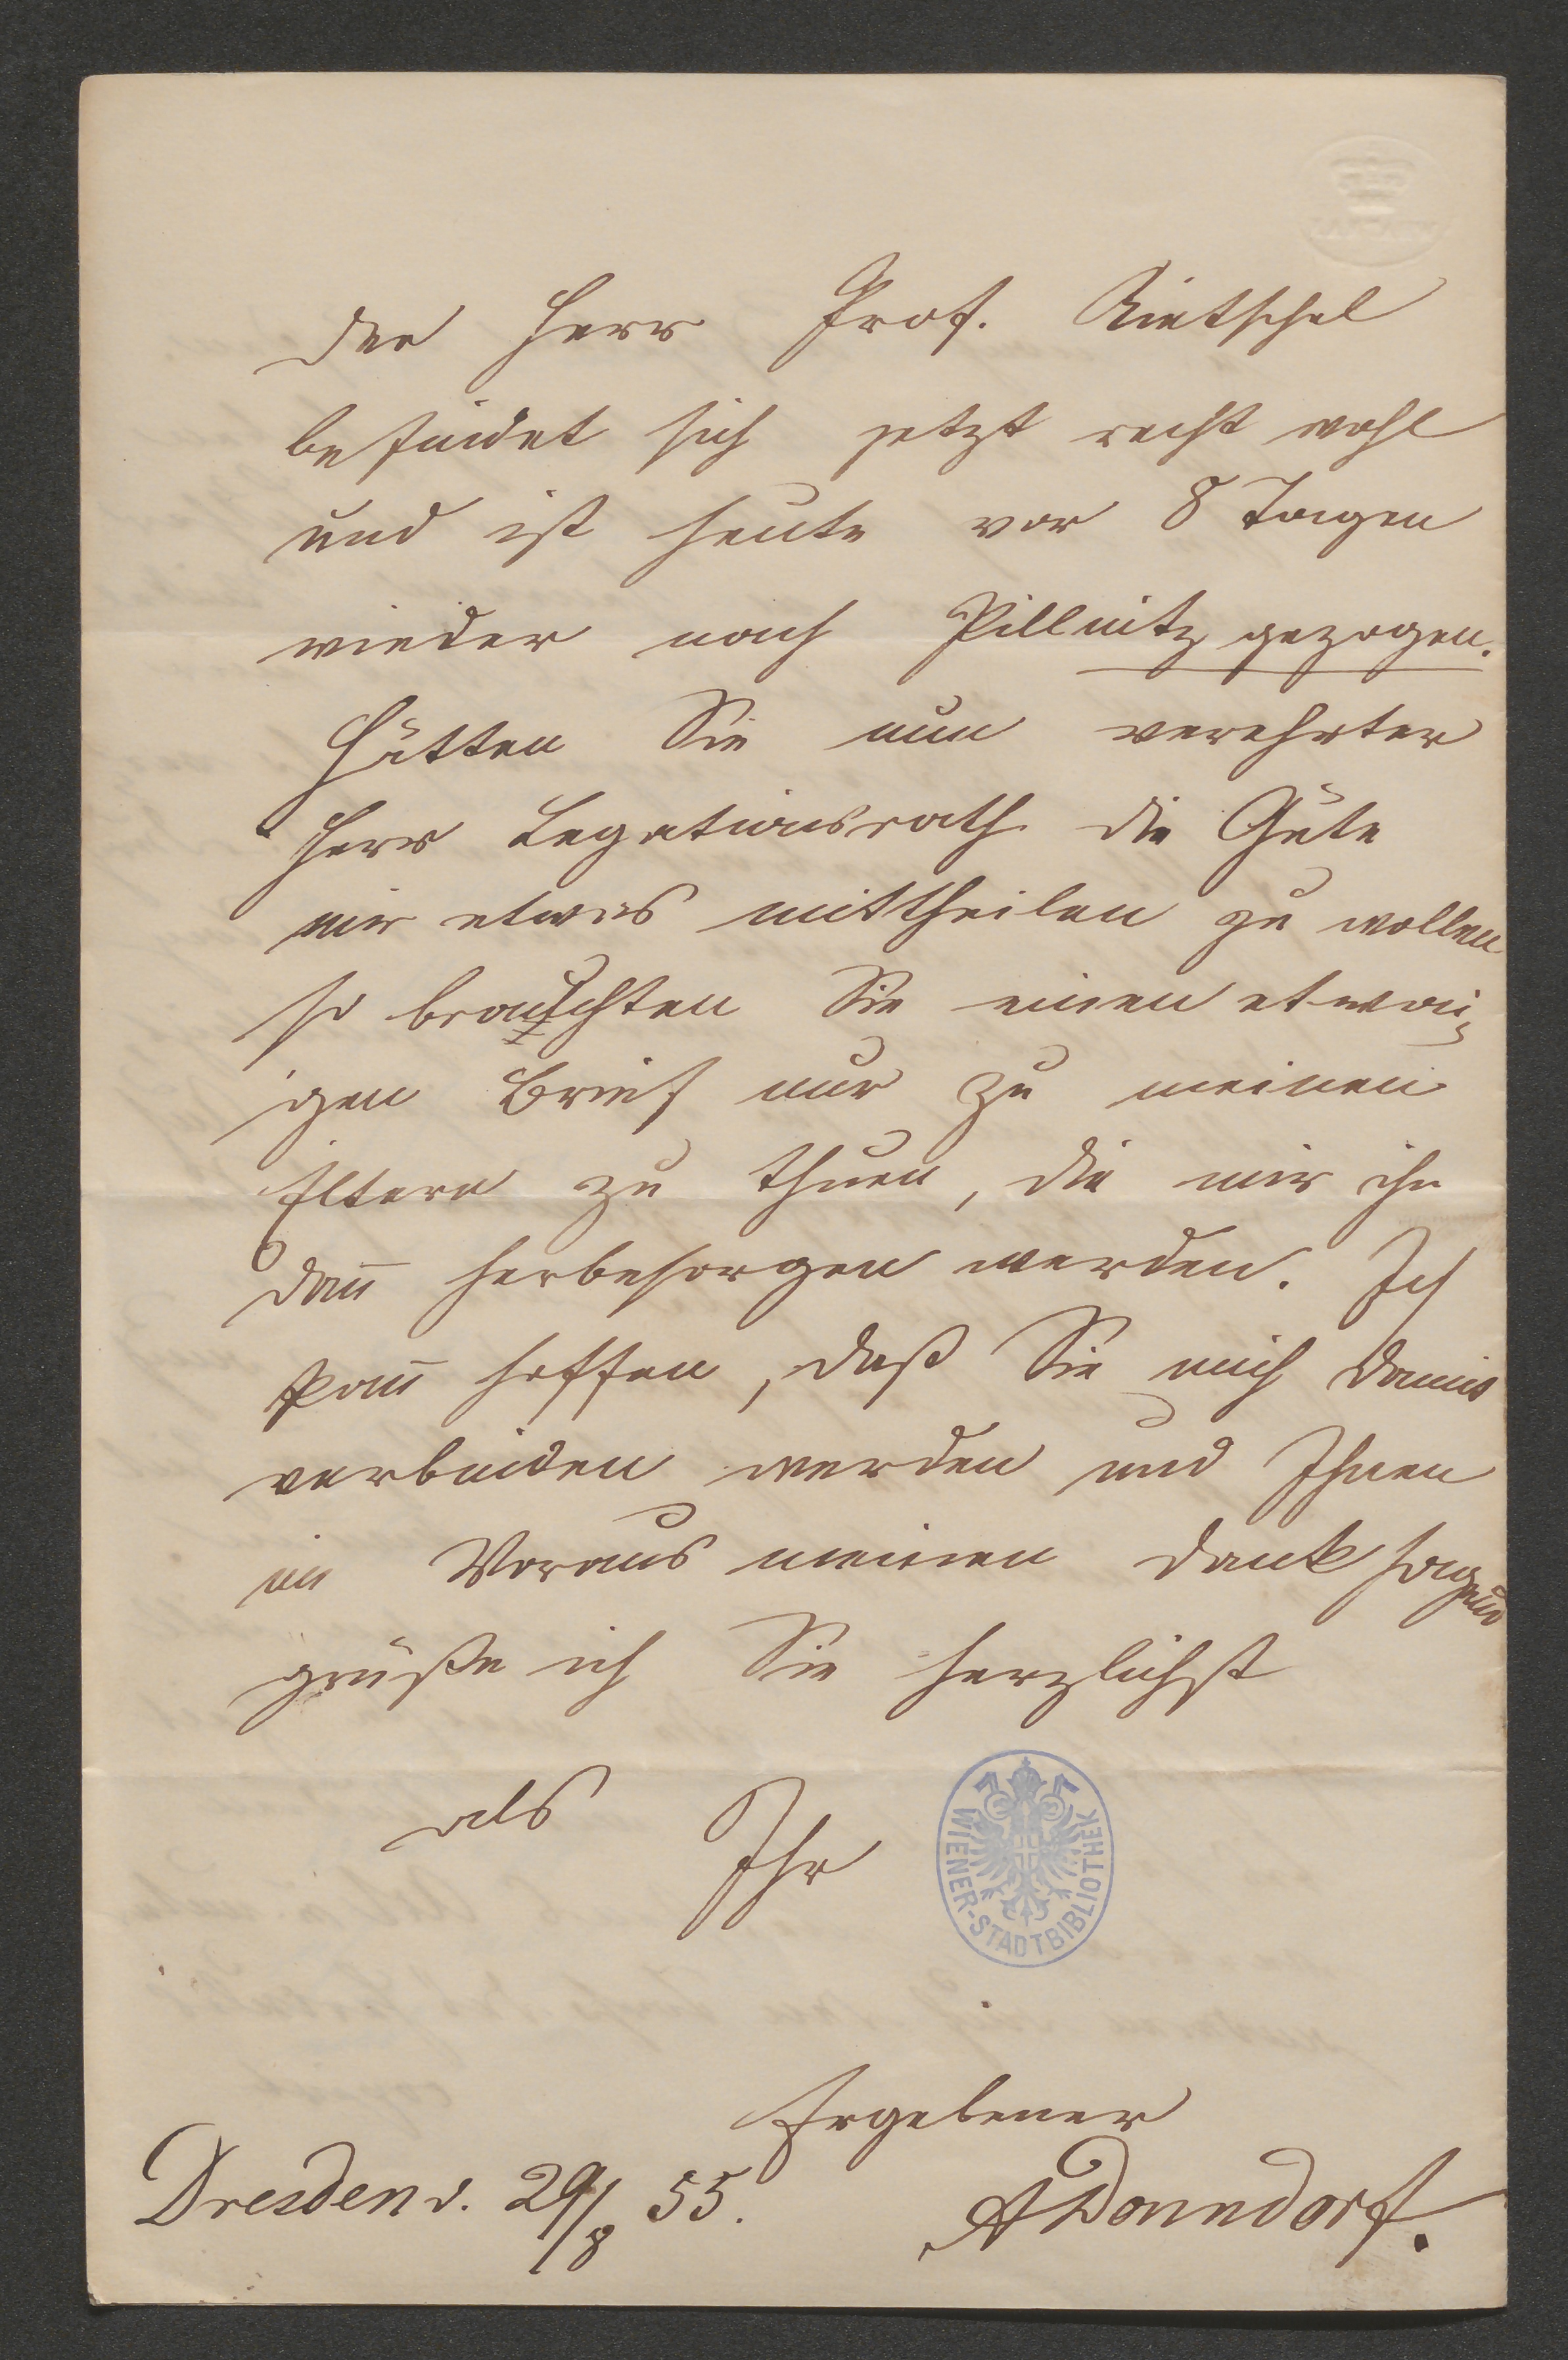 Der Herr Prof. Rietschel
befindet sich jetzt recht wohl
und ist heute vor 8 Tagen
wieder nach Pillnitz gezogen.
Hätten Sie nun verehrter
Herr Legationsrath die Güte
mir etwas mittheilen zu wollen
so brauchten Sie einen etwai-
gen Brief nur zu meinen
Eltern zu thuen, die mir ihn
dan̄ herbesorgen werden. Ich
kan̄ hoffen, daß Sie mich damit
verbinden werden und Ihnen
im Voraus meinen Dank sagend
grüße ich Sie herzlichst
als Ihr
WIENER-STADTBIBLIOTHEK
Ergebener
Dresden d. 29/8 55. ADonndorf.